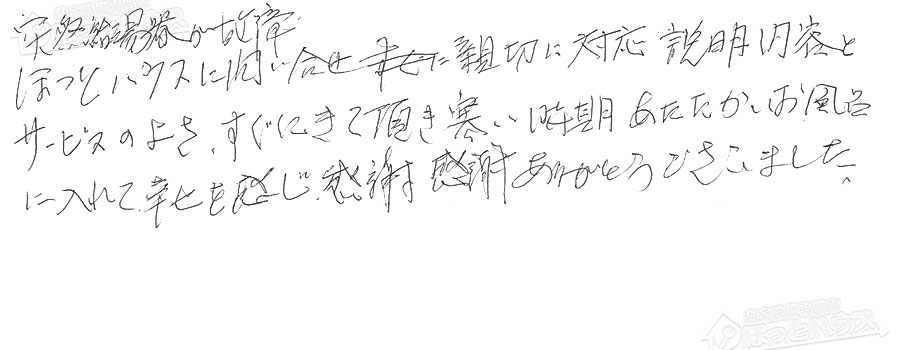 突然給湯器が故障
ほっとハウスに問い合せ 親切に対応 説明内容と
サービスのよさ、すぐにきて頂き寒い時期あたたかいお風呂
に入れて幸せを感じ、感謝 感謝ありがとうございました。
住宅設備専門店
ほっとハウス